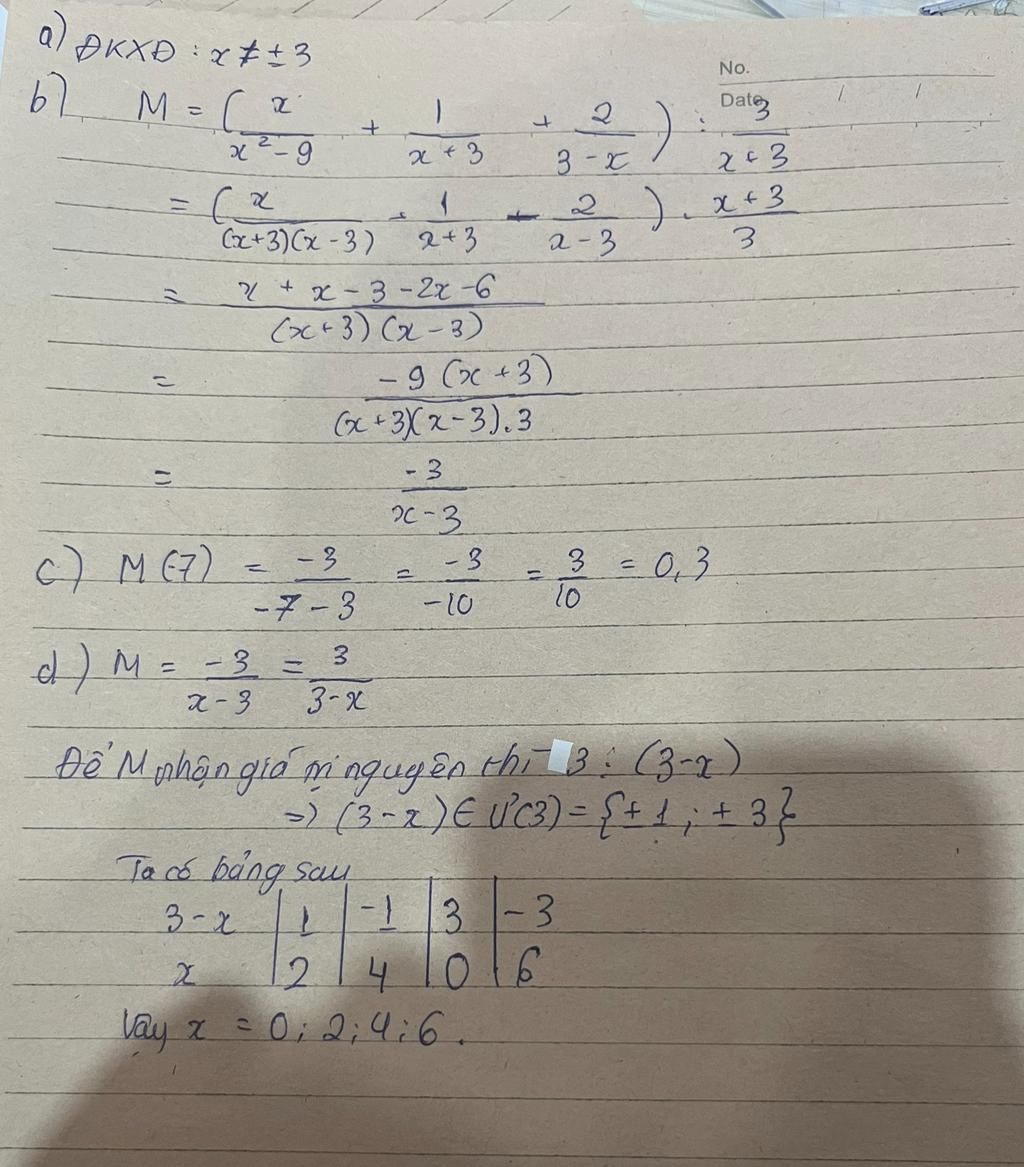 a) ĐKXĐ : x ≠ ± 3
No.
Date / /
b) M = ( x / (x² - 9) + 1 / (x + 3) + 2 / (3 - x) ) : 3 / (x + 3)
= ( x / ((x+3)(x - 3)) + 1 / (x+3) - 2 / (x - 3) ) . (x + 3) / 3
= (x + x - 3 - 2x - 6) / ((x + 3) (x - 3))
= -9 (x + 3) / ((x + 3)(x - 3).3)
= -3 / (x - 3)
c) M (-7) = -3 / (-7 - 3) = -3 / -10 = 3 / 10 = 0,3
d) M = -3 / (x - 3) = 3 / (3 - x)
Để M nhận giá trị nguyên thì 3 ⋮ (3-x)
=> (3 - x) ∈ Ư(3) = {± 1 ; ± 3}
Ta có bảng sau
3 - x | 1 | -1 | 3 | -3
x | 2 | 4 | 0 | 6
Vậy x = 0 ; 2 ; 4 ; 6 .